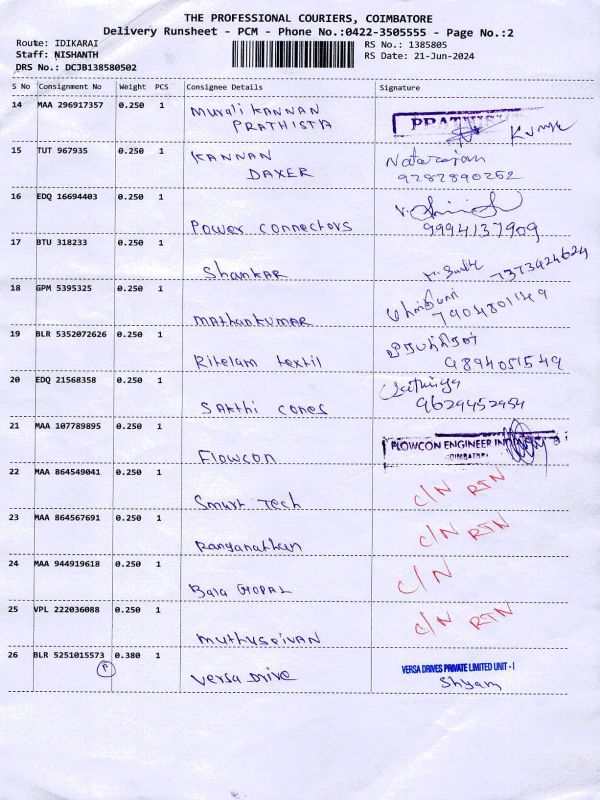 THE PROFESSIONAL COURIERS, COIMBATORE
Delivery Runsheet - PCM - Phone No.:0422-3505555 - Page No.:2
Route: IDIKARAI
RS No.: 1385805
Staff: NISHANTH
RS Date: 21-Jun-2024
DRS No.: DCJB138580502
S No Consignment No Weight PCS Consignee Details Signature
14 MAA 296917357 0.250 1 Murali KANNAN
PRATHISTA
PRATHISTA
Kumar
15 TUT 967935 0.250 1 KANNAN
DAXER
Natarajan
9282890252
16 EDQ 16694403 0.250 1
Power connectors
9994137909
17 BTU 318233 0.250 1
Shankar
7373924624
18 GPM 5395325 0.250 1
Mathankumar
7904801149
19 BLR 5352072626 0.250 1
Ritelam textil
9894051549
20 EDQ 21568358 0.250 1
Sakthi cones
9629452954
21 MAA 107789895 0.250 1
Flowcon
FLOWCON ENGINEER
COIMBATORE
22 MAA 864549041 0.250 1
Smart Tech
C/N RTN
23 MAA 864567691 0.250 1
Ranganathan
C/N RTN
24 MAA 944919618 0.250 1
Bala GOPAL
C/N
25 VPL 222036088 0.250 1
Muthuselvan
C/N RTN
26 BLR 5251015573 0.380 1
P
Versa Drive
VERSA DRIVES PRIVATE LIMITED UNIT - I
Shyam